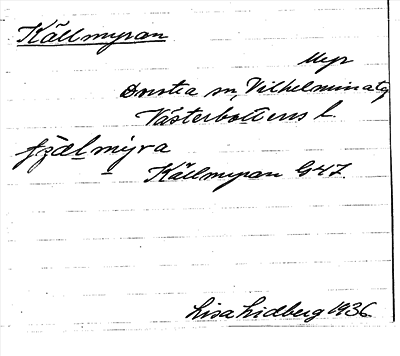 Källmyran
Myr
Dorotea sn, Vilhelmina tg
Västerbottens l.
Källmyran G47.
Lisa Lidberg 1936